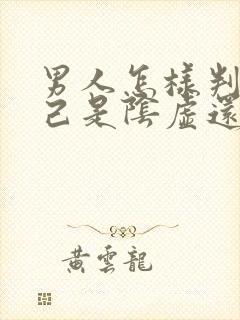 男人怎樣判
己是陰虛還
黃雲龍